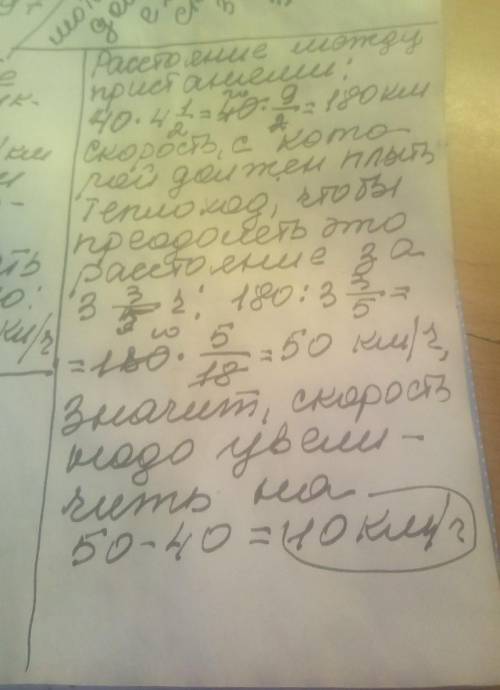 Расстояние между
пристанями:
40 · 4 1/2 = 40 · 9/2 = 180 км
скорость, с кото
рой должен плыть
теплоход, чтобы
преодолеть это
расстояние за
3 3/5 ч: 180 : 3 3/5 =
= 180 · 5/18 = 50 км/ч,
значит, скорость
надо увели-
чить на
50 - 40 = 10 км/ч